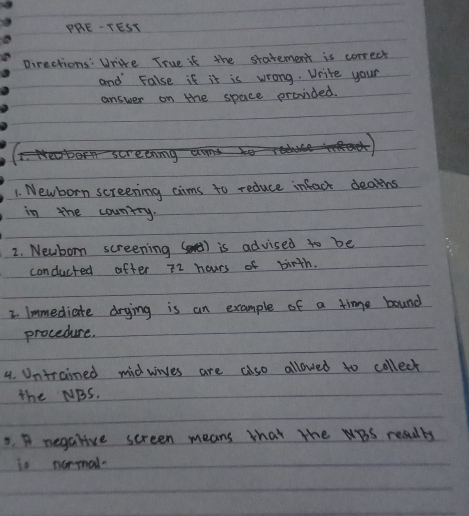 PRE-TEST
Directions: Write True if the statement is correct
and False if it is wrong. Write your
answer on the space provided.
(1. Newborn screening aims to reduce infact)
1. Newborn screening aims to reduce infact deaths
in the country.
2. Newborn screening () is advised to be
conducted after 72 hours of birth.
3. Immediate drying is an example of a time bound
procedure.
4. Untrained midwives are also allowed to collect
the NBS.
5. A negative screen means that the NBS results
is normal.